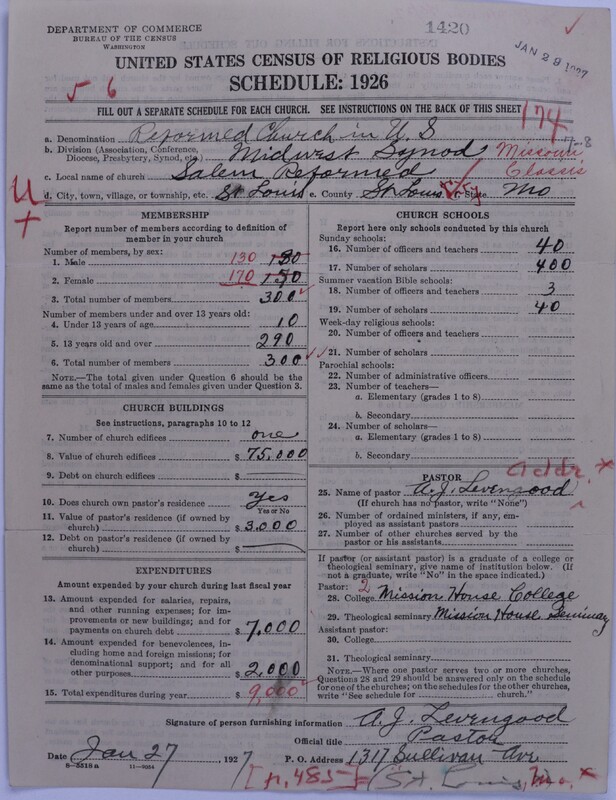 DEPARTMENT OF COMMERCE
BUREAU OF THE CENSUS
WASHINGTON
1420
JAN 29 1927
UNITED STATES CENSUS OF RELIGIOUS BODIES
SCHEDULE: 1926
5 6
FILL OUT A SEPARATE SCHEDULE FOR EACH CHURCH. SEE INSTRUCTIONS ON THE BACK OF THIS SHEET
174
17-8
a. Denomination Reformed Church in U. S
b. Division (Association, Conference, Diocese, Presbytery, Synod, etc.) Midwest Synod Missouri Classis
c. Local name of church Salem Reformed
d. City, town, village, or township, etc. St Louis e. County St Louis f. State Mo
U
+
MEMBERSHIP
Report number of members according to definition of
member in your church
Number of members, by sex:
1. Male 130 150
2. Female 170 150
3. Total number of members 300
Number of members under and over 13 years old:
4. Under 13 years of age 10
5. 13 years old and over 290
6. Total number of members 300
NOTE.—The total given under Question 6 should be the
same as the total of males and females given under Question 3.
CHURCH BUILDINGS
See instructions, paragraphs 10 to 12
7. Number of church edifices one
8. Value of church edifices $ 75,000
9. Debt on church edifices $
10. Does church own pastor's residence Yes
Yes or No
11. Value of pastor's residence (if owned by
church) $ 3,000
12. Debt on pastor's residence (if owned by
church) $
EXPENDITURES
Amount expended by your church during last fiscal year
13. Amount expended for salaries, repairs,
and other running expenses; for im-
provements or new buildings; and for
payments on church debt $ 7,000
14. Amount expended for benevolences, in-
cluding home and foreign missions; for
denominational support; and for all
other purposes $ 2,000
15. Total expenditures during year $ 9,000
CHURCH SCHOOLS
Report here only schools conducted by this church
Sunday schools:
16. Number of officers and teachers 40
17. Number of scholars 400
Summer vacation Bible schools:
18. Number of officers and teachers 3
19. Number of scholars 40
Week-day religious schools:
20. Number of officers and teachers
21. Number of scholars
Parochial schools:
22. Number of administrative officers
23. Number of teachers—
a. Elementary (grades 1 to 8)
b. Secondary
24. Number of scholars—
a. Elementary (grades 1 to 8)
b. Secondary
PASTOR
addr. *
25. Name of pastor A. J. Levengood
(If church has no pastor, write "None")
26. Number of ordained ministers, if any, em-
ployed as assistant pastors
27. Number of other churches served by the
pastor or his assistants
If pastor (or assistant pastor) is a graduate of a college or
theological seminary, give name of institution below. (If
not a graduate, write "No" in the space indicated.)
Pastor: 2
28. College Mission House College
29. Theological seminary Mission House Seminary
Assistant pastor:
30. College
31. Theological seminary
NOTE.—Where one pastor serves two or more churches,
Questions 28 and 29 should be answered only on the schedule
for one of the churches; on the schedules for the other churches,
write "See schedule for church."
Signature of person furnishing information A. J. Levengood
Official title Pastor
Date Jan 27, 1927 P. O. Address 1317 Sullivan Ave
8—5518a 11—9054
[p. 485] = (St. Louis, Mo. *